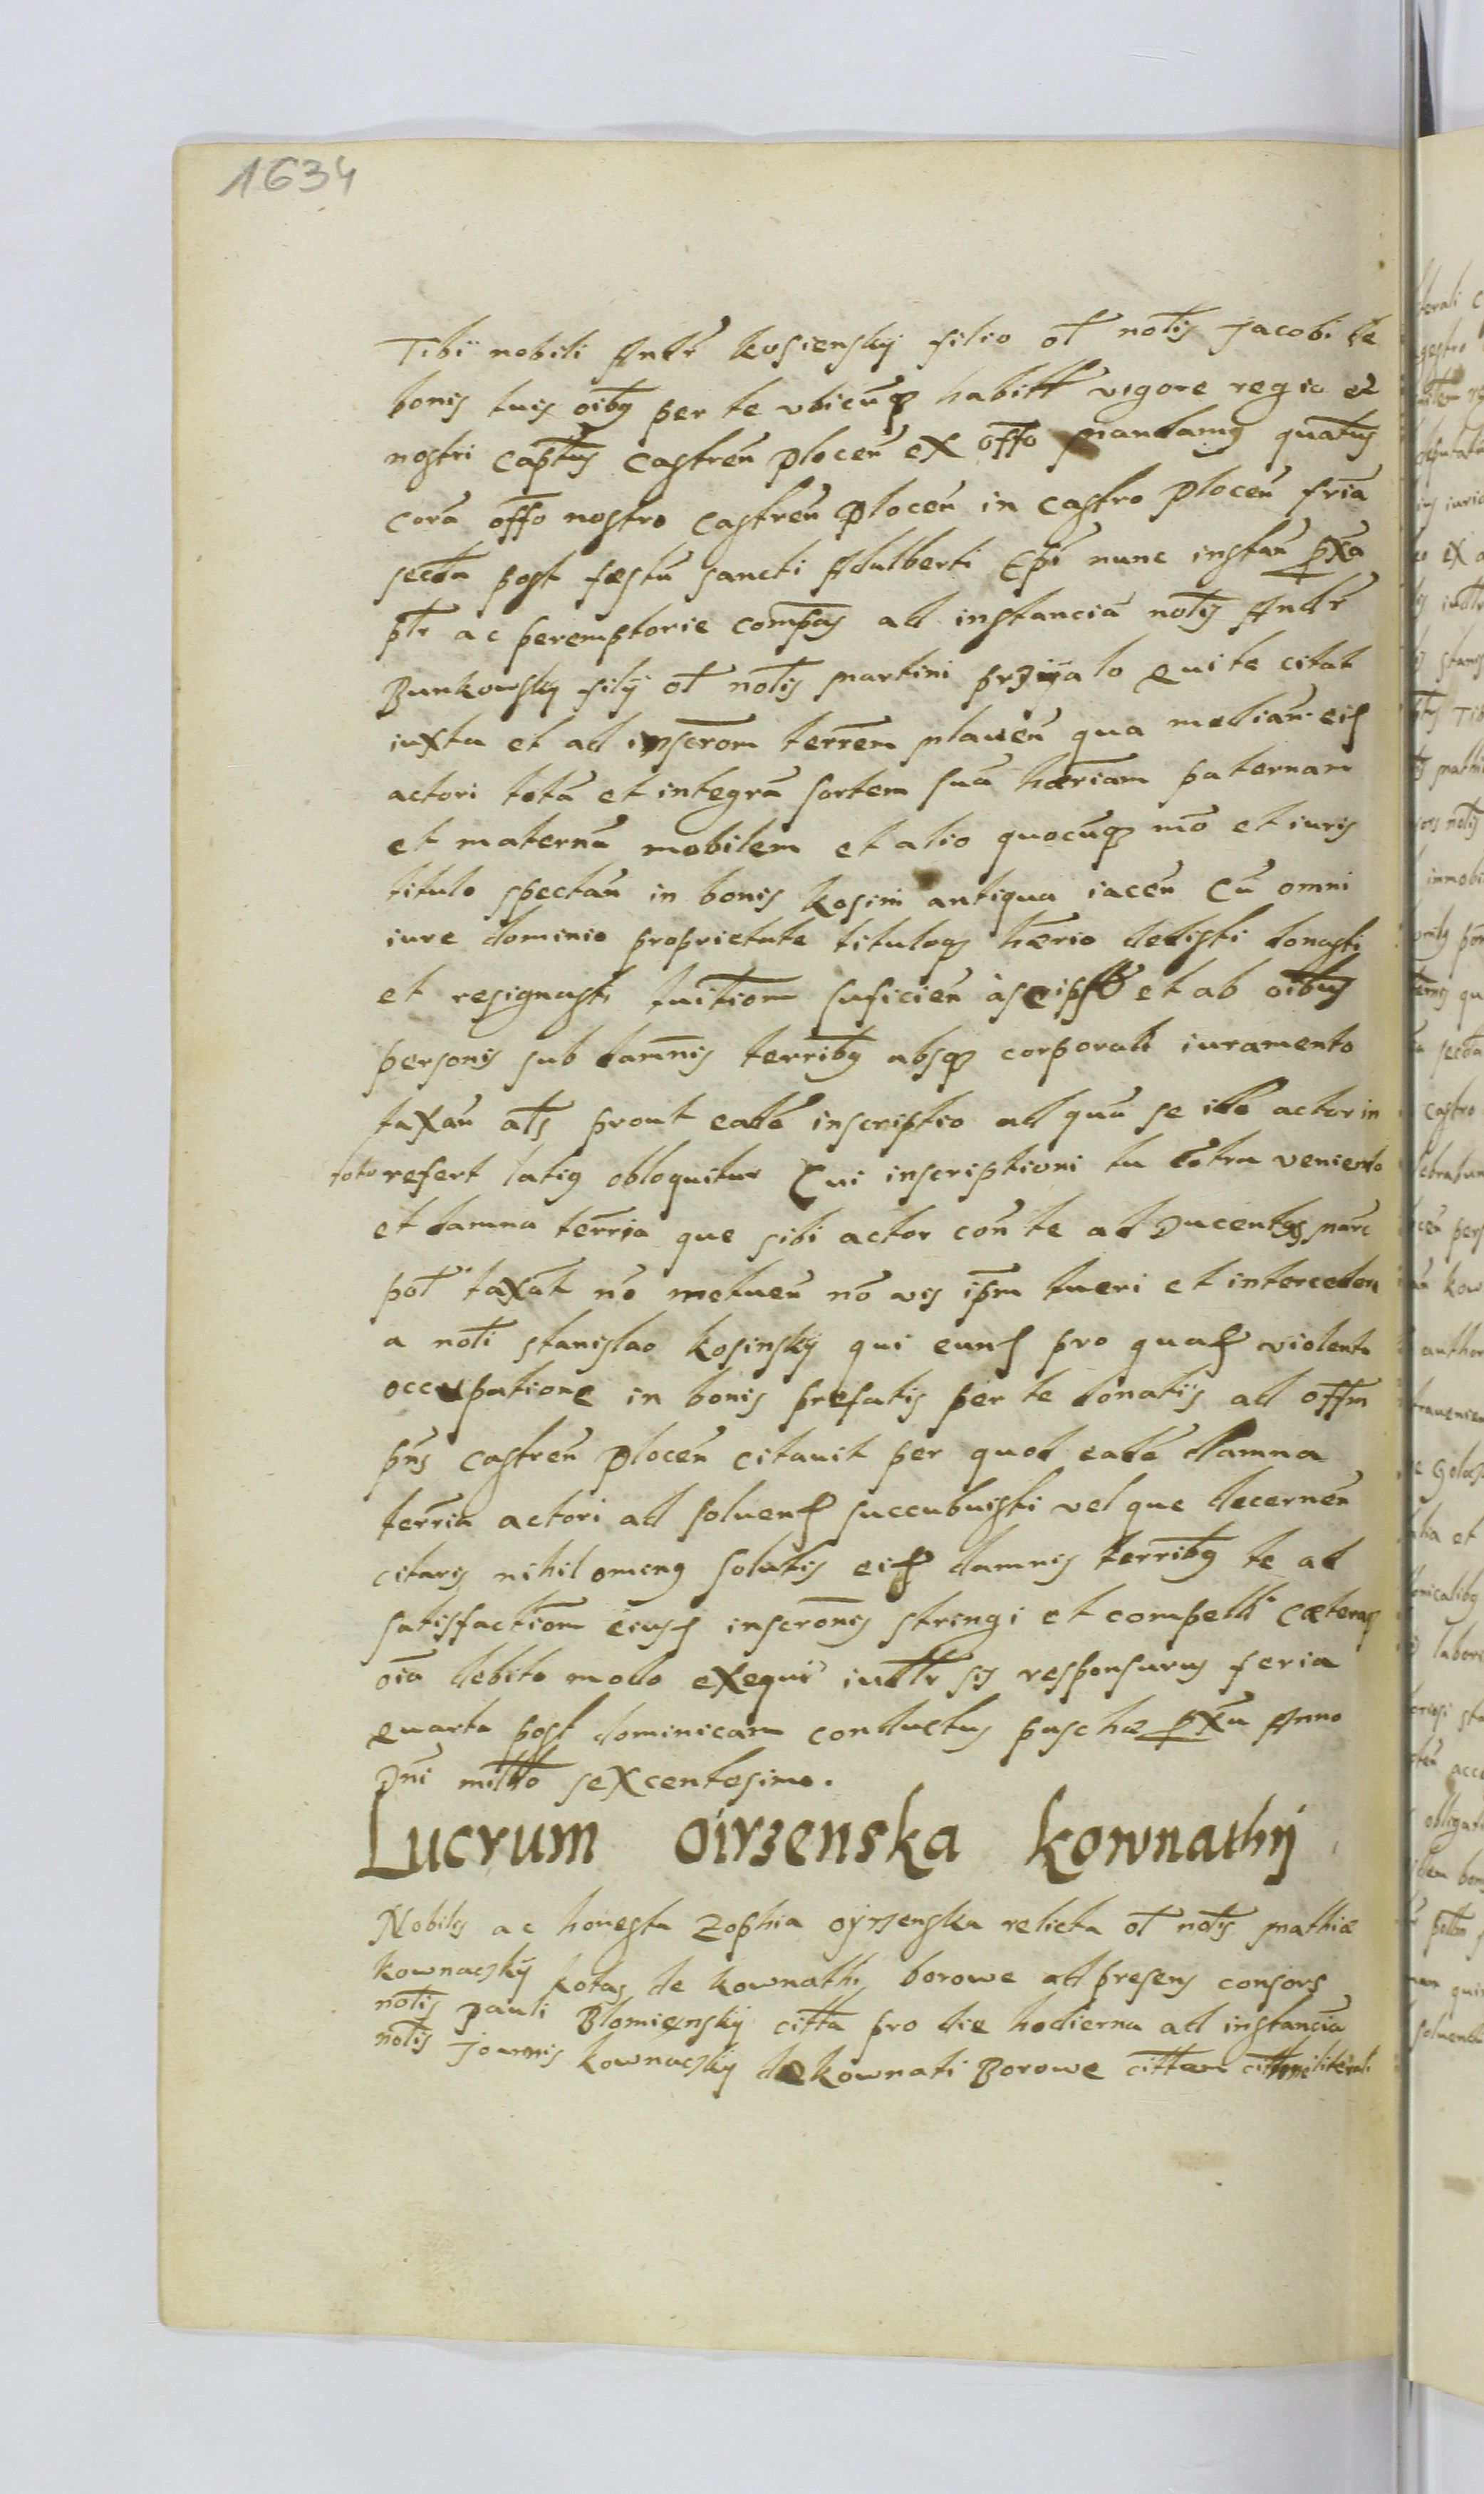 1634
Tibi nobili Andr̃ kosiensky filio ol̃ nōlis Jacobi de
bonis tuis oībq per te vbicūq habitt vigore regio et
nostri cap̄tus Castreñ Ploceñ ex offo mandamq quat̄us
corā offo nostro Castreñ Ploceñ in Castro Ploceñ fria
secda post festū sancti Adalberti Ep̄i nunc instañ p̄xa
pt̄r ac peremptorie comp̄as ad instanciā nōlis Andr̃
Bunkowsky filij ol̃ nōlis Martini przijalo qui te citat
iuxta et ad inscr̄om terrēm plaueñ qua mediañ eid
actori totā et integrā sortem suā hæriam paternam
et maternā mobilem et alio quocūq mō et iuris
titulo spectañ in bonis kosini antiqua iaceñ Cū omni
iure dominio proprietate tituloq hærio dedisti donasti
et resignasti tuitiom suficieñ ascripsto et ab oībus
personis sub damnis terribq absq corporali iuramento
taxañ als prout eadē inscriptio ad quā se ille actor in
toto refert latiq obloquitur Cui inscriptioni tu cōtra veniendo
et damna terria que sibi actor coñ te ad Ducentas marc
pol taxat nō metueñ nō vis ip̄m tueri et intercedere
a nōli Stanislao kosinsky qui eund pro quad violenta
occupatione in bonis prefatis per te donatis ad offm
p̄ns Castreñ Ploceñ citauit per quod eadē damna
terria actori ad soluend succubuisti vel que decerneñ
citaris nihilomenq solutis eisd damnis terribq te ad
satisfactiom eiusd inscrōnis stringi et compelli cæteraq
oīa debito modo exequi iudtr sis responsurus feria
quarta post dominicam conductus paschæ p̄xa Anno
Dni millo sexcentesimo.
Lucrum oirzenska kownathij
Nobilis ac honesta Zophia oyrzenska relicta ol̃ nōlis Mathiæ
kownaczky kotas de kownathi borowe ad presens consors
nōlis Pauli Blomiensky citta pro die hodierna ad instanciā
nōlis Joannis kownaczky de kownati Borowe cittem cittone literali